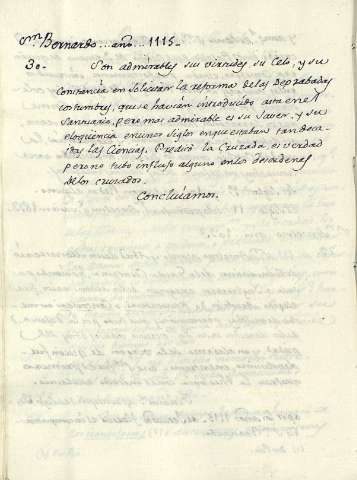 Sn. Bernardo...año...1115..
30.. Son admirables sus virtudes su Celo, y su
Constancia en solicitar la reforma de las Depravadas
costumbres, que se havian introducido asta en el
Santuario, pero mas admirable es su Saver, y su
eloquencia en unos siglos en que estaban tan deca-
idas las Ciencias. Predicó la Cruzada, es verdad
pero no tubo influxo alguno en los desordenes
de los cruzados.
Concluiamos.